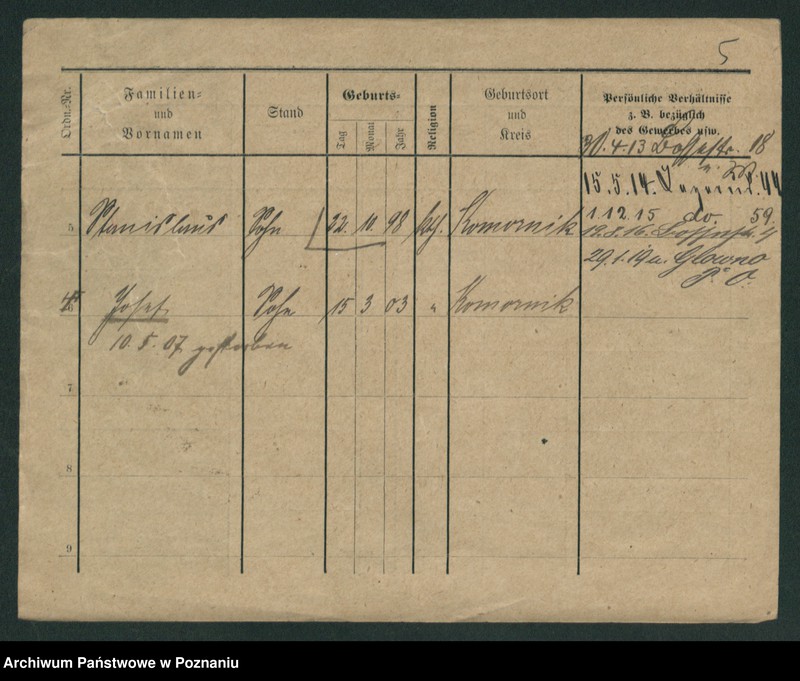 5
Ordn.-Nr.
Familien-
und
Vornamen
Stand
Geburts-
Tag
Monat
Jahr
Religion
Geburtsort
und
Kreis
Persönliche Verhältnisse
z. B. bezüglich
des Gewerbes usw.
30. 4. 13 18
15. 5. 14. 44
5 Stanislaus Sohn 22. 10. 98 kth. Komornik 1. 12. 15 do. 59
29. 1. 19 n. Glowno
P. O.
6 Josef Sohn 15 3 03 " Komornik
10. 5. 07 gestorben
7
8
9
Archiwum Państwowe w Poznaniu